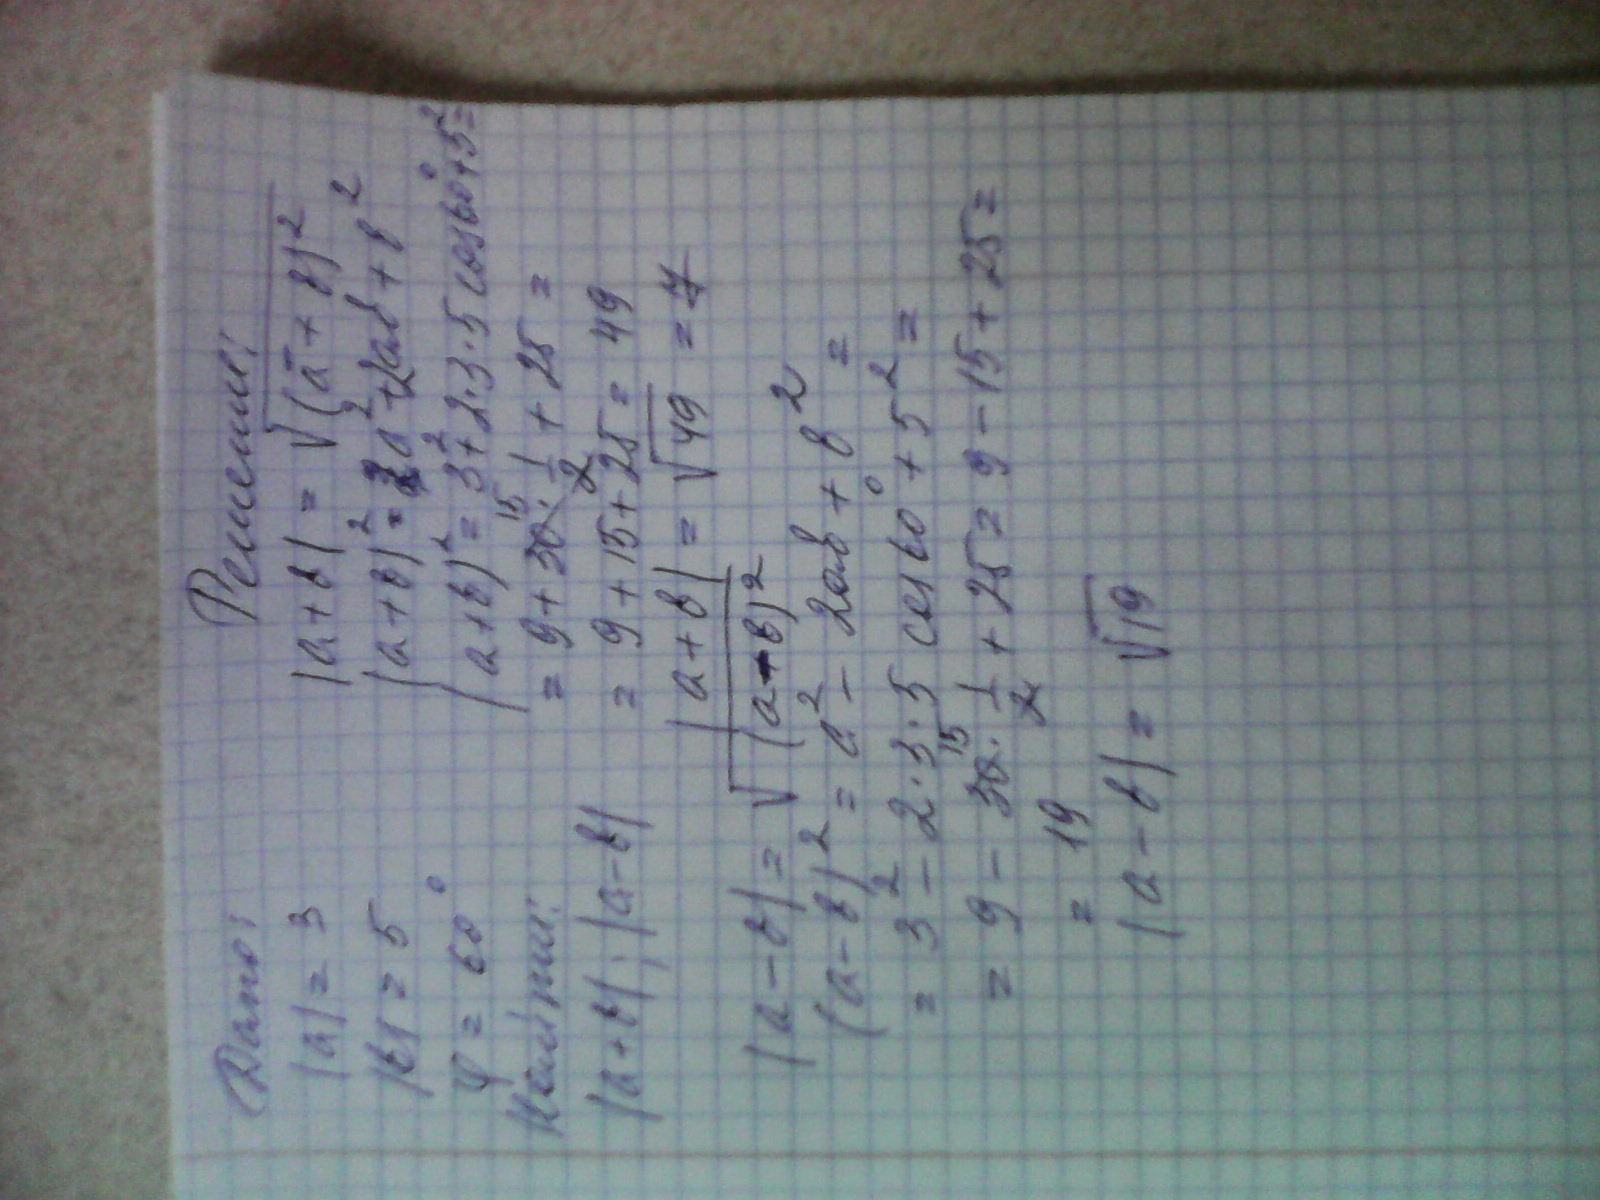 Дано:
|a| = 3
|b| = 5
φ = 60°
Найти:
|a+b|; |a-b|
Решение:
|a+b| = √(a̅+b)²
(a+b)² = a²+2ab+b²
(a+b)² = 3²+2·3·5 cos60°+5²=
= 9+30·1/2 + 25 =
15
= 9+15+25 = 49
|a+b| = √49 = 7
|a-b| = √(a-b)²
(a-b)² = a² - 2ab + b² =
= 3² - 2·3·5 cos60° + 5² =
= 9 - 30·1/2 + 25 = 9-15+25=
15
= 19
|a-b| = √19